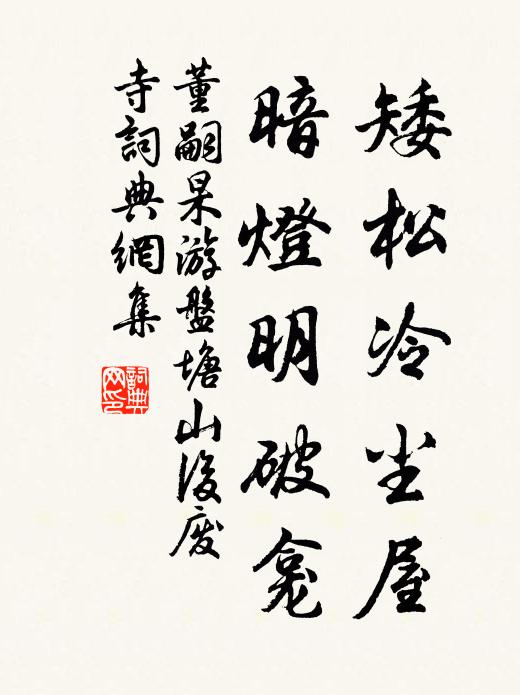 矮松冷尘屋
暗燈明破龕
董嗣杲游盤塘山後廢
寺詞典網集
詞典
网印